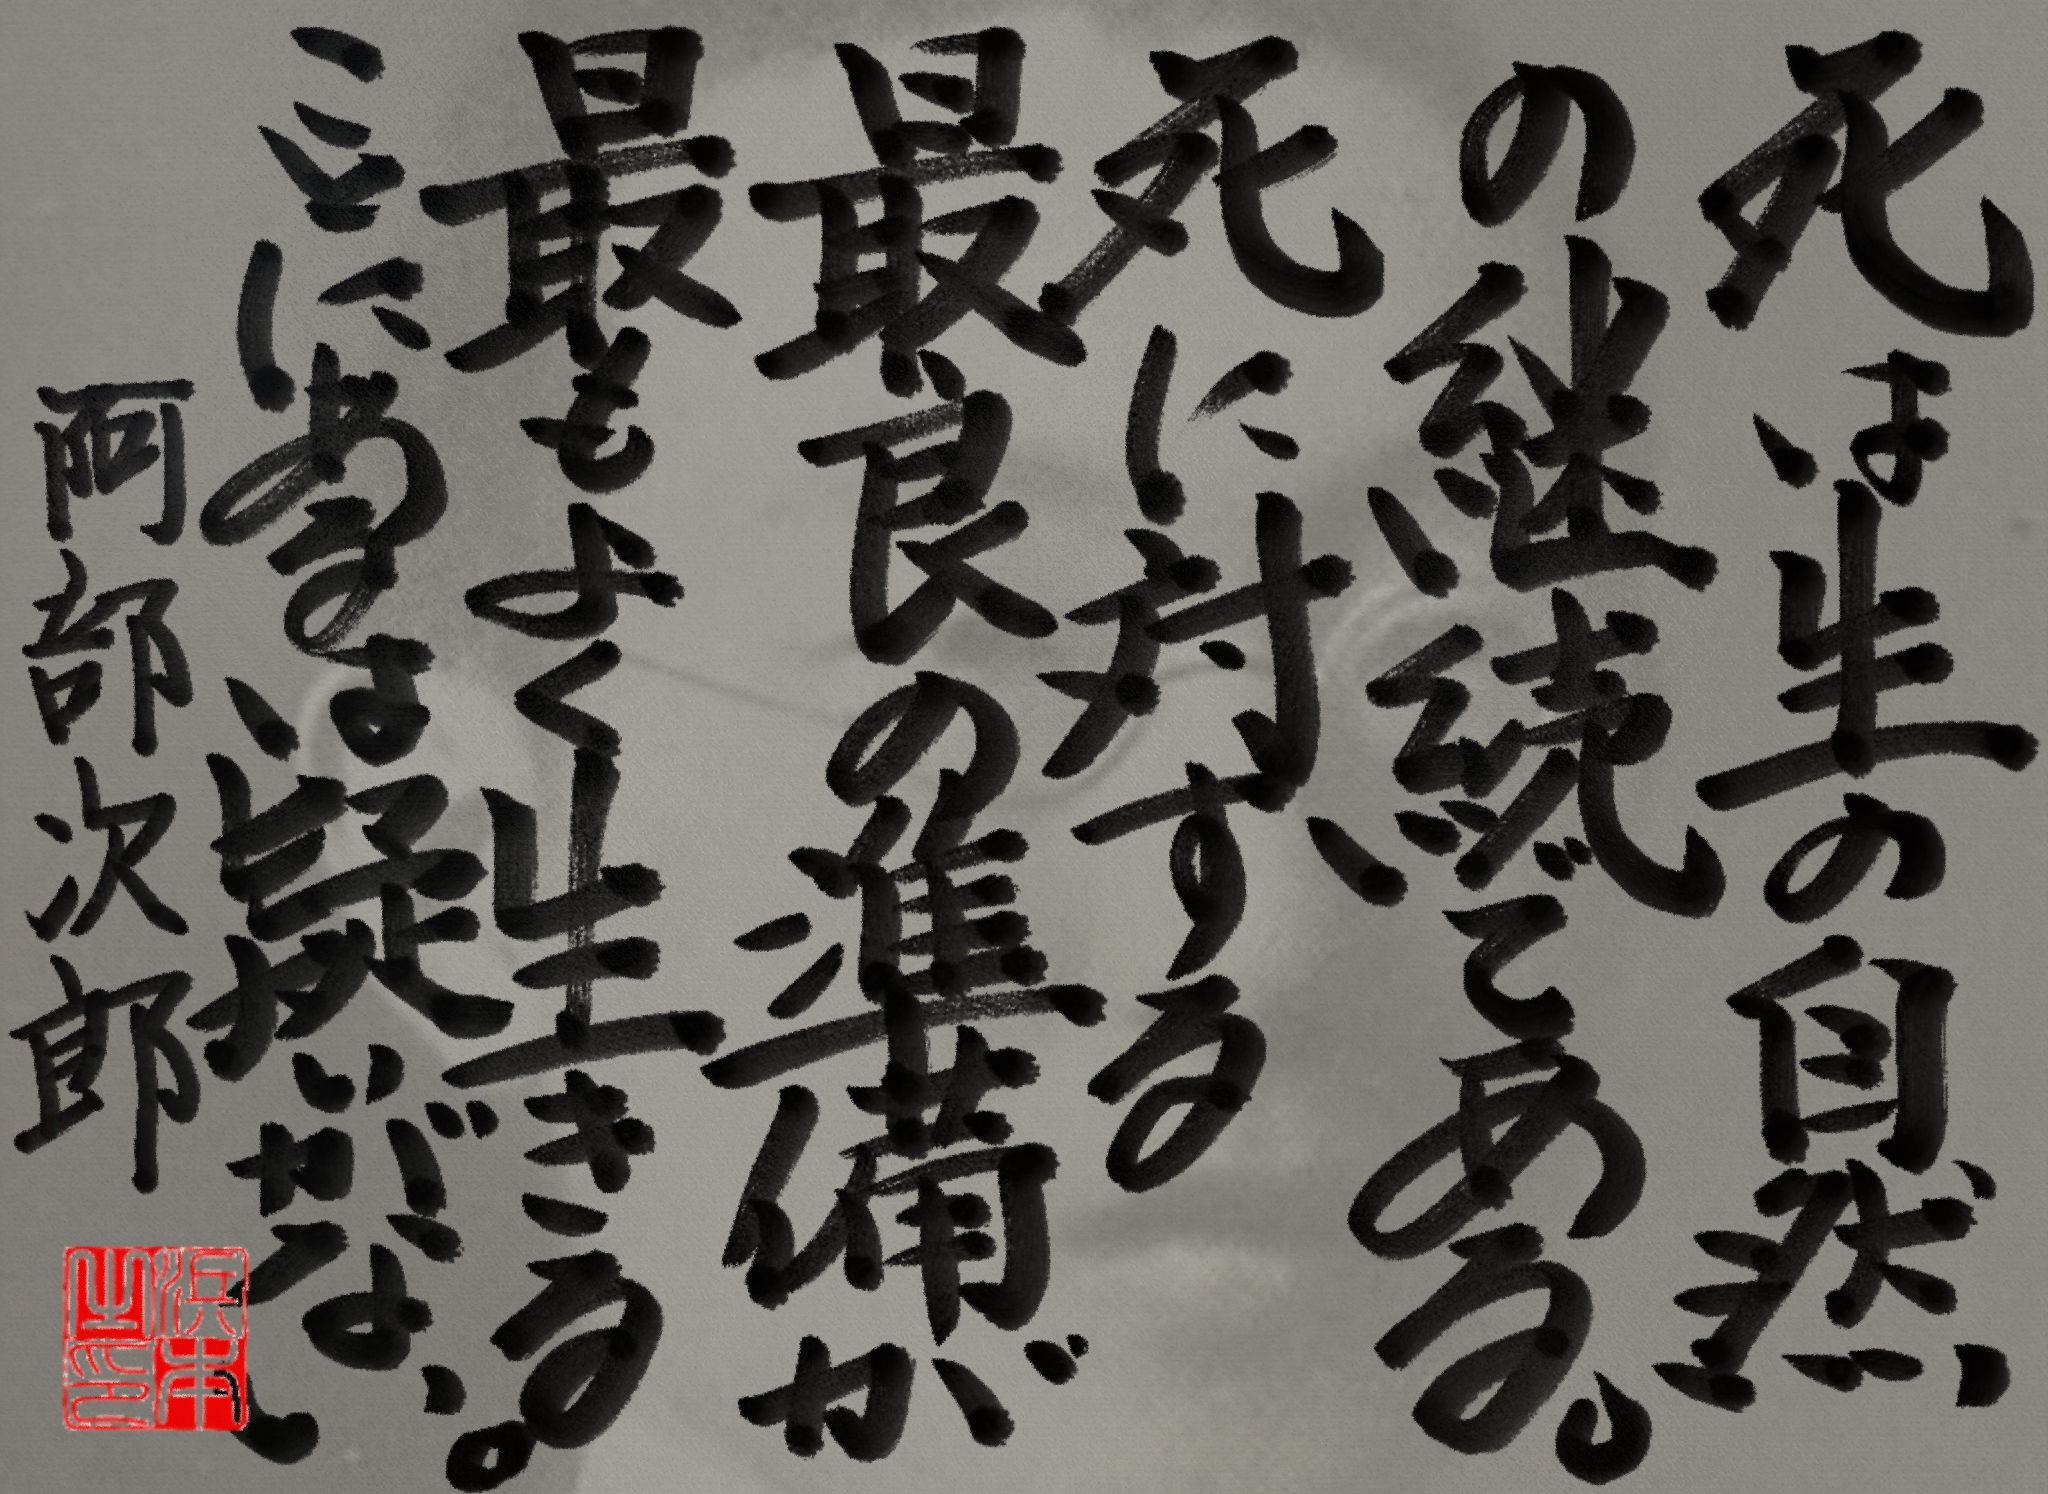 死は生の自然
の継続である。
死に対する
最良の準備が
最もよく生きる
ことにあるは疑いがない。
阿部次郎
浜本之印